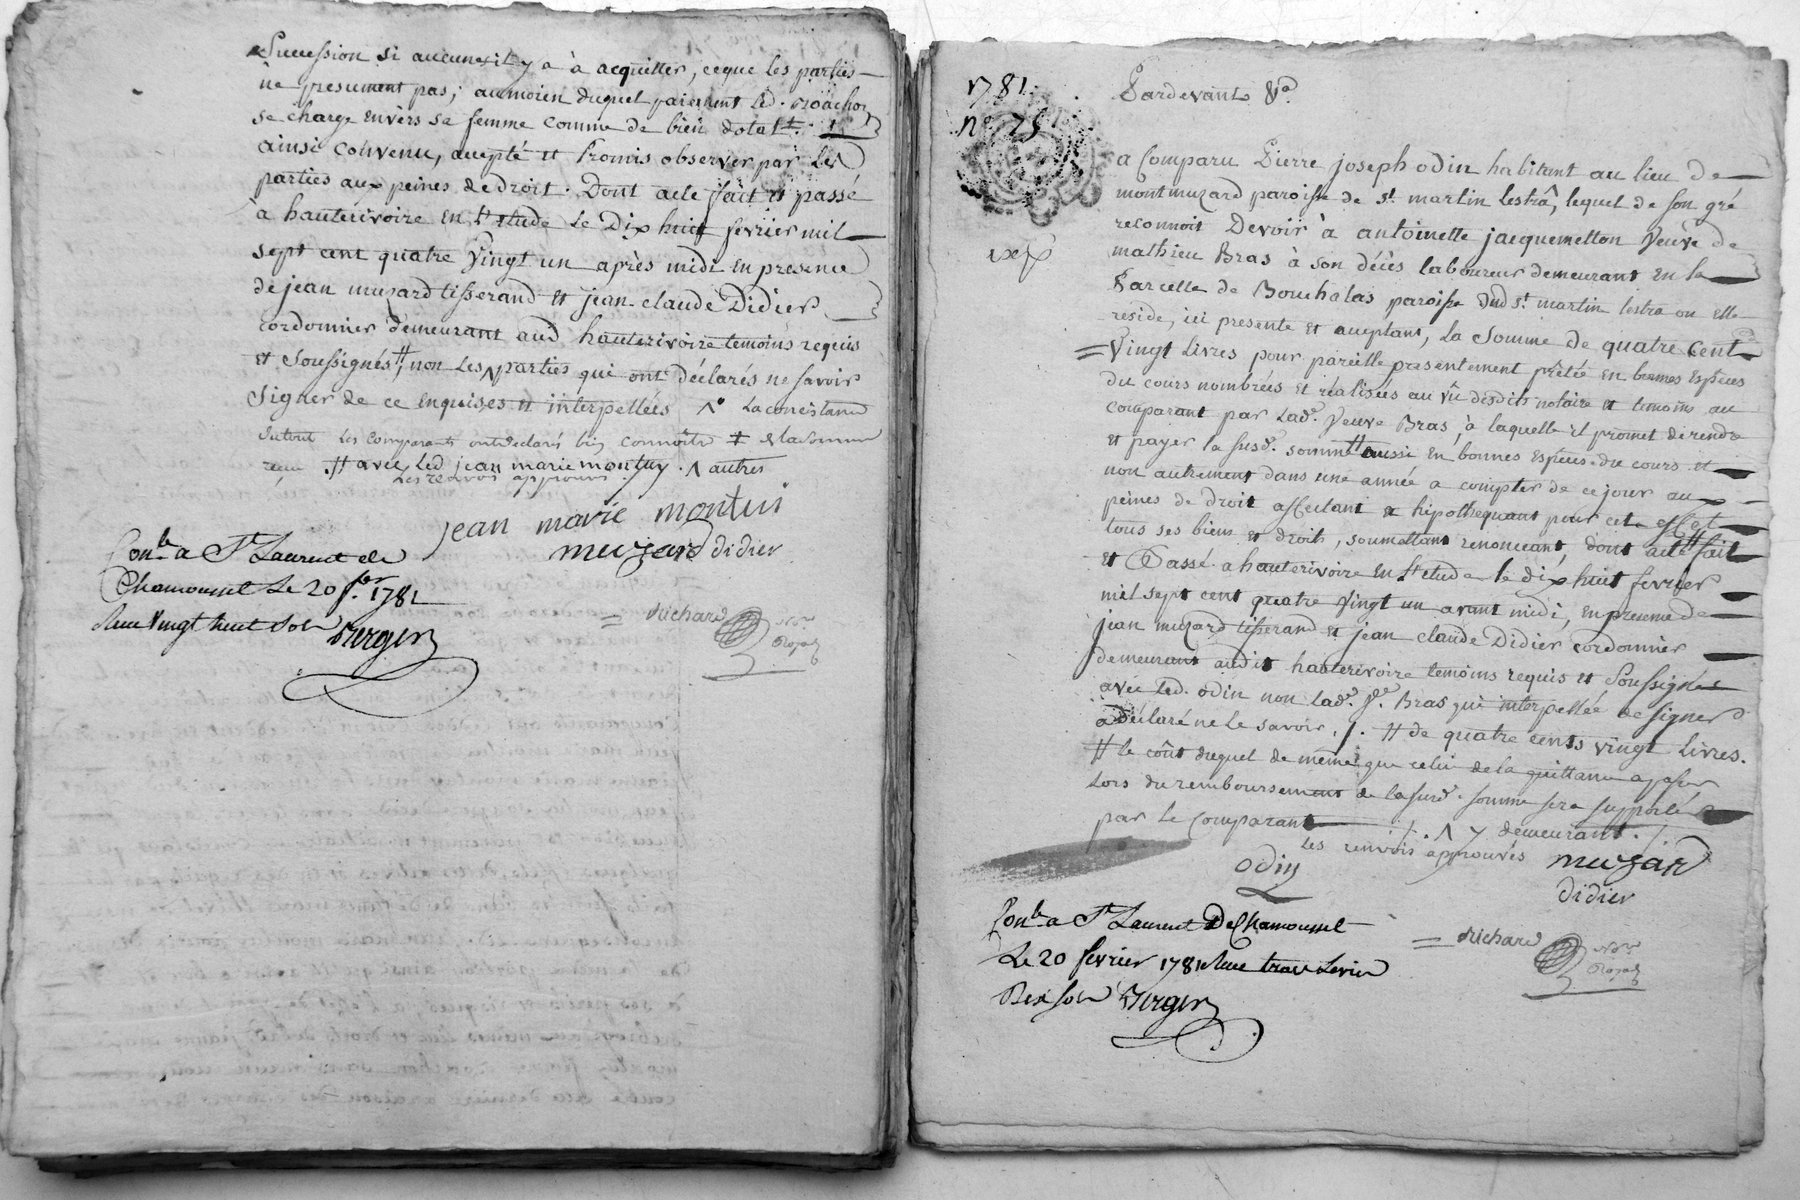 Succession si aucune il y a à acquitter, ceque les parties
ne presument pas; aumoien duquel paiement led.
se charge envèrs sa femme comme de bien dotal
ainsi convenu, accepté et Promis observer par les
parties aux peines de droit. Dont acte fait et passé
a hauterivoire en l'etude le Dix huit fevrier mil
sept cent quatre Vingt un après midi en presence
de jean muzard tisserand et jean claude Didier
cordonnier demeurant aud hauterivoire temoins requis
et Soussignés # non Les ᴧ parties qui ont déclarés ne savoir
signer de ce enquises et interpellées
Les comparants ont declaré bien connoitre
# avec led jean marie montuy . ᴧ autres
Les renvois approuvés
jean marie montui
muzard didier
Conlé a St Laurent de
Chamousset Le 20 fer. 1781
Reçu Vingt huit sols Verger
= Richard Nre
Royal
1781.
n° 75
Pardevant &a.
a Comparu Pierre joseph odin habitant au lieu de
montmuzard paroisse de st. martin lestrâ, lequel de son gré
reconnoit Devoir à antoinette jacquemetton Veuve de
mathieu Bras à son décès laboureur demeurant en la
Parcelle de Bouchalas paroisse dud st. martin lestra ou elle
reside, ici presente et acceptant, la somme de quatre Cent
Vingt Livres pour pareille presentement prêtée en bonnes Espèces
du cours nombrées et réalisées au vû desdits notaire et temoins au
comparant par lade. Veuve Bras, à laquelle il promet de rendre
et payer la susde. somme # aussi en bonnes Espèces du cours et
non autrement dans une année a compter de ce jour aux
peines de droit affectant et hipothequant pour cet effet
tous ses biens et droits, soumettant renonceant, dont acte # fait
et Passé a hauterivoire en l'etude le dix huit fevrier
mil sept cent quatre Vingt un avant midi, en presence de
jean muzard tisserand et jean claude Didier cordonnier
demeurant audit hauterivoire temoins requis et Soussignés
avec led. odin non lade. Ve. Bras qui interpellée de signer
a déclaré ne le savoir. /. # de quatre cents vingt Livres.
# le coût duquel de même que celui de la quittance a passer
Lors du remboursement de la susde. somme sera supporté
par le comparant /. ᴧ y demeurant. /.
Les renvois approuvés
muzard
odin
didier
Conlé a St Laurent De Chamousset
Le 20 fevrier 1781 Reçu trois Livres
Dix sols Verger
= Richard Nre
Royal